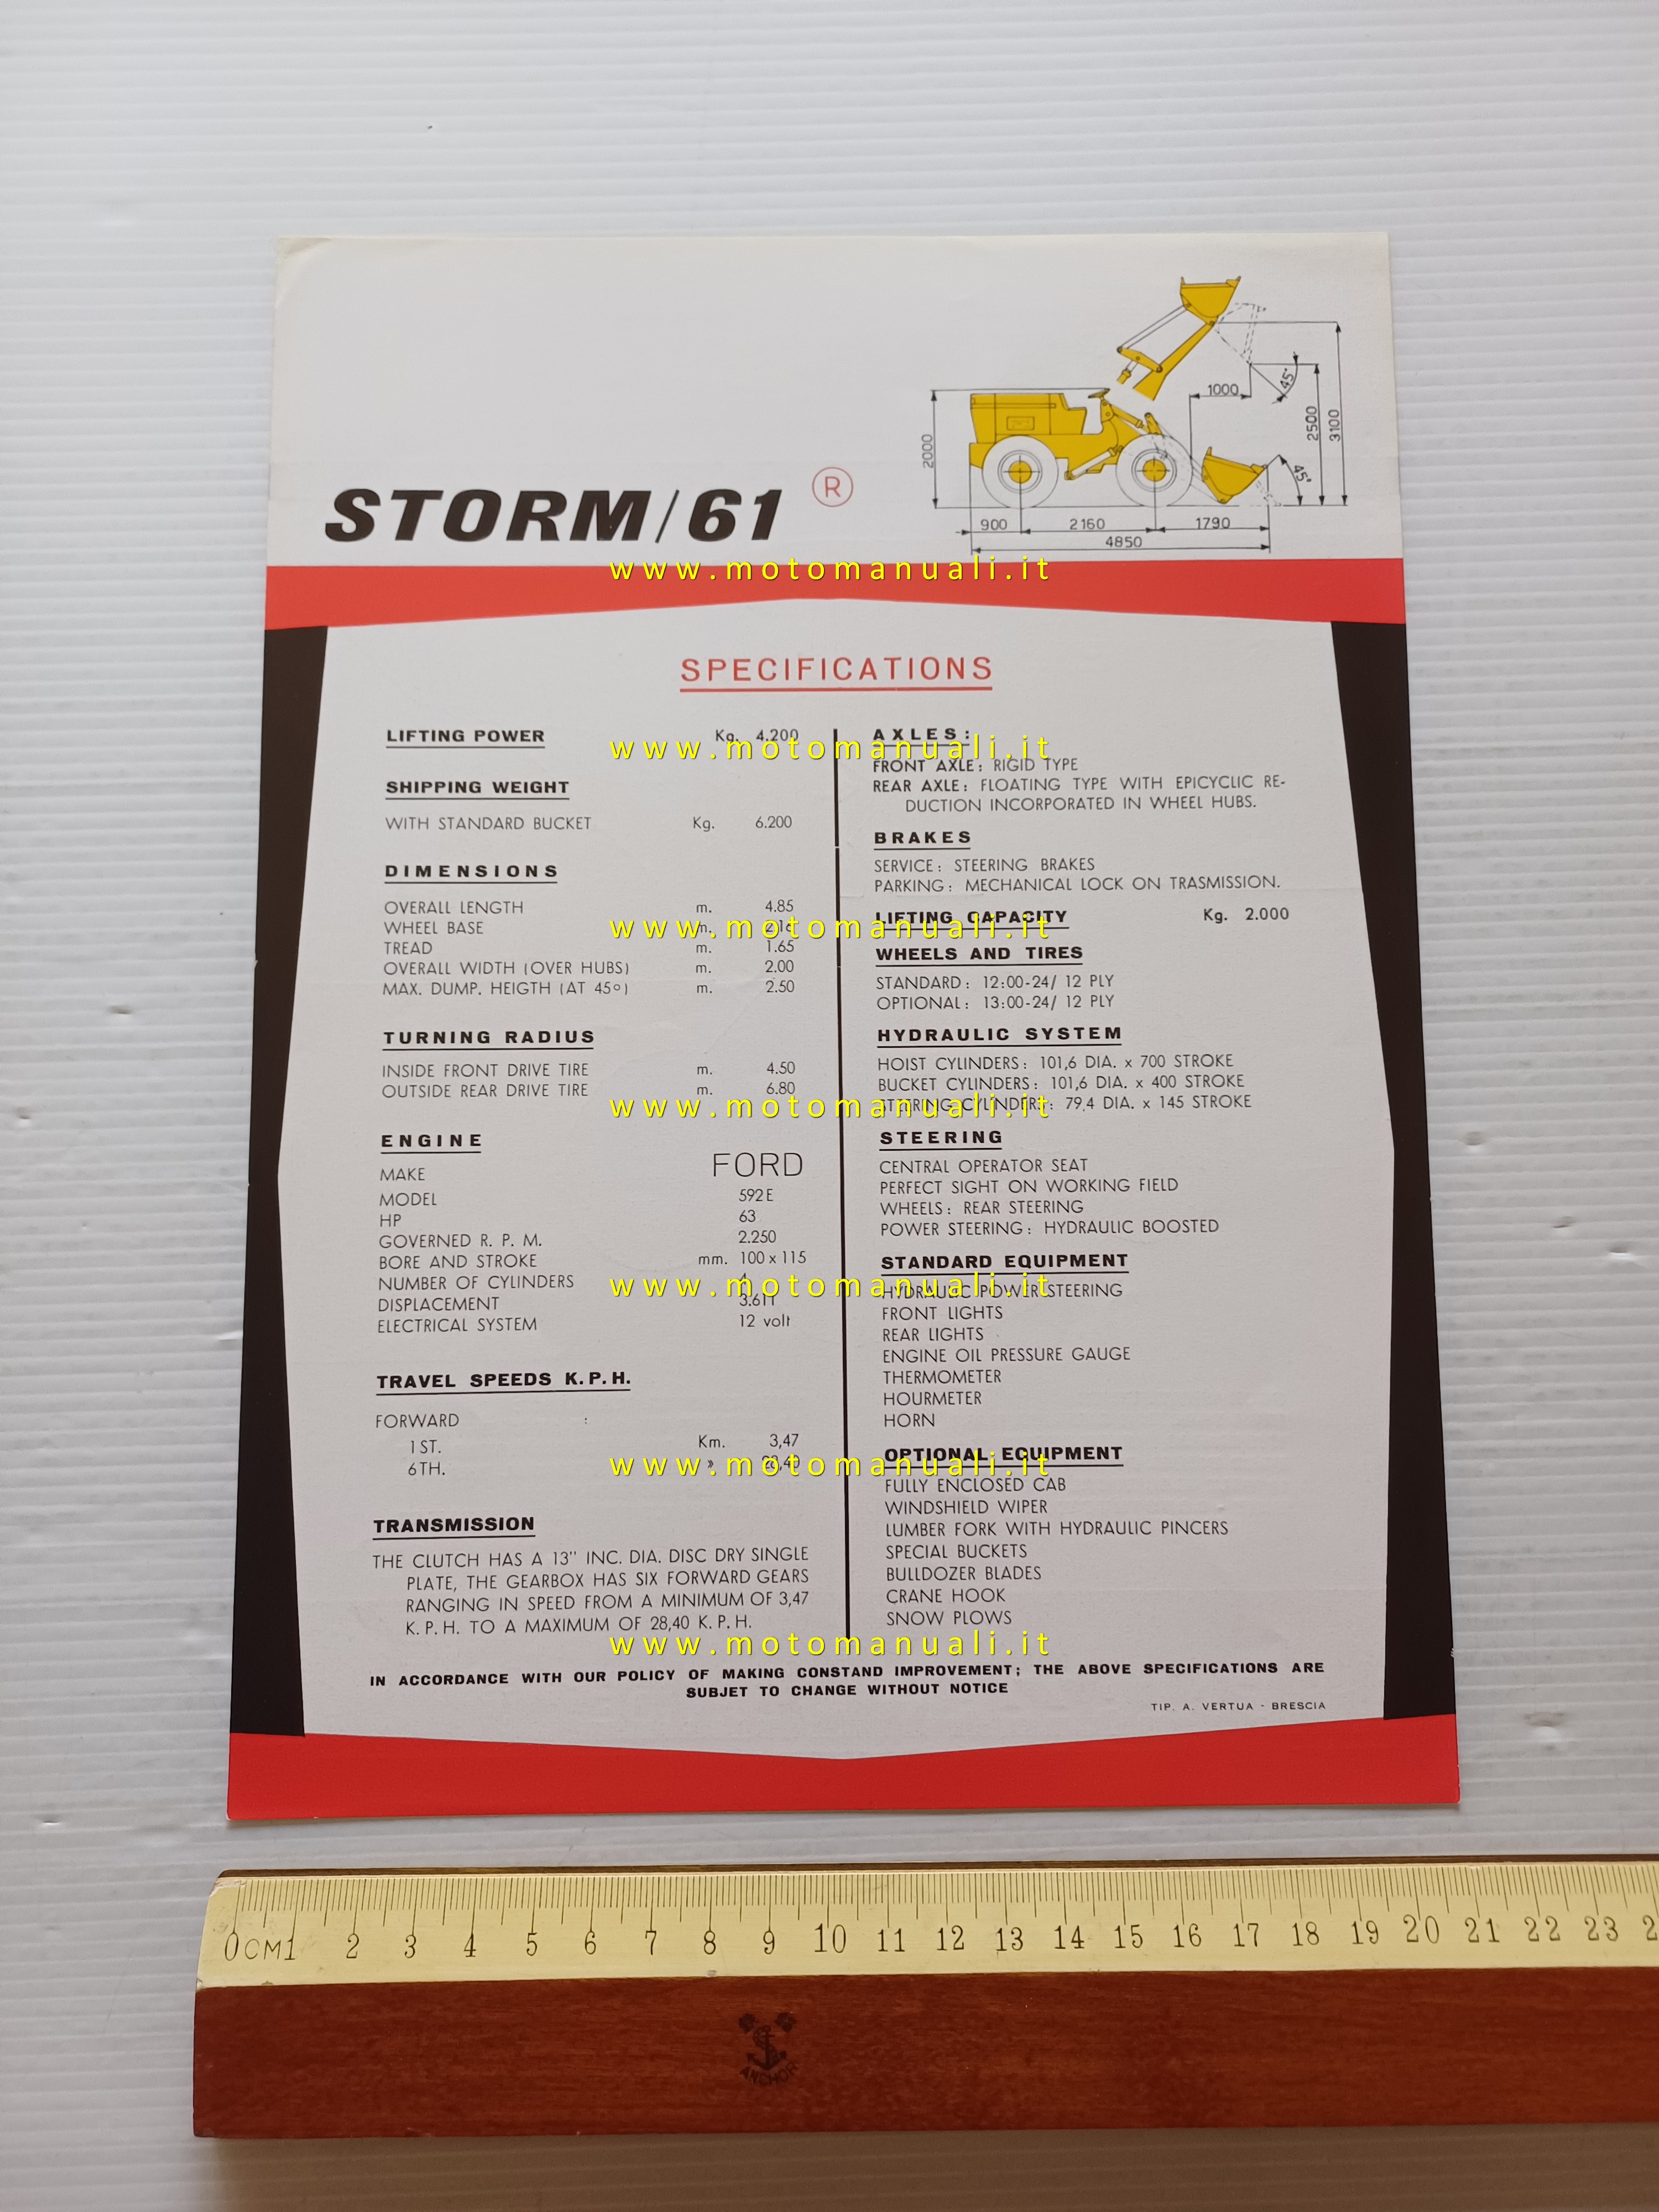 STORM/61 ®
2000
900
2160
1790
4850
1000
45°
2500
3100
45°
www.motomanuali.it
SPECIFICATIONS
LIFTING POWER Kg. 4.200
www.motomanuali.it
SHIPPING WEIGHT
WITH STANDARD BUCKET Kg. 6.200
DIMENSIONS
OVERALL LENGTH m. 4.85
WHEEL BASE m.
www.motomanuali.it
TREAD m. 1.65
OVERALL WIDTH (OVER HUBS) m. 2.00
MAX. DUMP. HEIGTH (AT 45°) m. 2.50
TURNING RADIUS
INSIDE FRONT DRIVE TIRE m. 4.50
OUTSIDE REAR DRIVE TIRE m. 6.80
www.motomanuali.it
ENGINE
MAKE FORD
MODEL 592E
HP 63
GOVERNED R. P. M. 2.250
BORE AND STROKE mm. 100 x 115
NUMBER OF CYLINDERS 4
www.motomanuali.it
DISPLACEMENT 3.611
ELECTRICAL SYSTEM 12 volt
TRAVEL SPEEDS K.P.H.
FORWARD :
1ST. Km. 3,47
6TH. » 28,40
www.motomanuali.it
TRANSMISSION
THE CLUTCH HAS A 13" INC. DIA. DISC DRY SINGLE
PLATE, THE GEARBOX HAS SIX FORWARD GEARS
RANGING IN SPEED FROM A MINIMUM OF 3,47
K. P. H. TO A MAXIMUM OF 28,40 K. P. H.
www.motomanuali.it
AXLES:
FRONT AXLE: RIGID TYPE
REAR AXLE: FLOATING TYPE WITH EPICYCLIC RE-
DUCTION INCORPORATED IN WHEEL HUBS.
BRAKES
SERVICE: STEERING BRAKES
PARKING: MECHANICAL LOCK ON TRASMISSION.
LIFTING CAPACITY Kg. 2.000
WHEELS AND TIRES
STANDARD: 12:00-24/ 12 PLY
OPTIONAL: 13:00-24/ 12 PLY
HYDRAULIC SYSTEM
HOIST CYLINDERS: 101,6 DIA. x 700 STROKE
BUCKET CYLINDERS: 101,6 DIA. x 400 STROKE
STEERING CYLINDER: 79,4 DIA. x 145 STROKE
STEERING
CENTRAL OPERATOR SEAT
PERFECT SIGHT ON WORKING FIELD
WHEELS: REAR STEERING
POWER STEERING: HYDRAULIC BOOSTED
STANDARD EQUIPMENT
HYDRAULIC POWER STEERING
FRONT LIGHTS
REAR LIGHTS
ENGINE OIL PRESSURE GAUGE
THERMOMETER
HOURMETER
HORN
OPTIONAL EQUIPMENT
FULLY ENCLOSED CAB
WINDSHIELD WIPER
LUMBER FORK WITH HYDRAULIC PINCERS
SPECIAL BUCKETS
BULLDOZER BLADES
CRANE HOOK
SNOW PLOWS
IN ACCORDANCE WITH OUR POLICY OF MAKING CONSTAND IMPROVEMENT; THE ABOVE SPECIFICATIONS ARE
SUBJET TO CHANGE WITHOUT NOTICE
TIP. A. VERTUA - BRESCIA
0CM1 2 3 4 5 6 7 8 9 10 11 12 13 14 15 16 17 18 19 20 21 22 23
ANCHOR